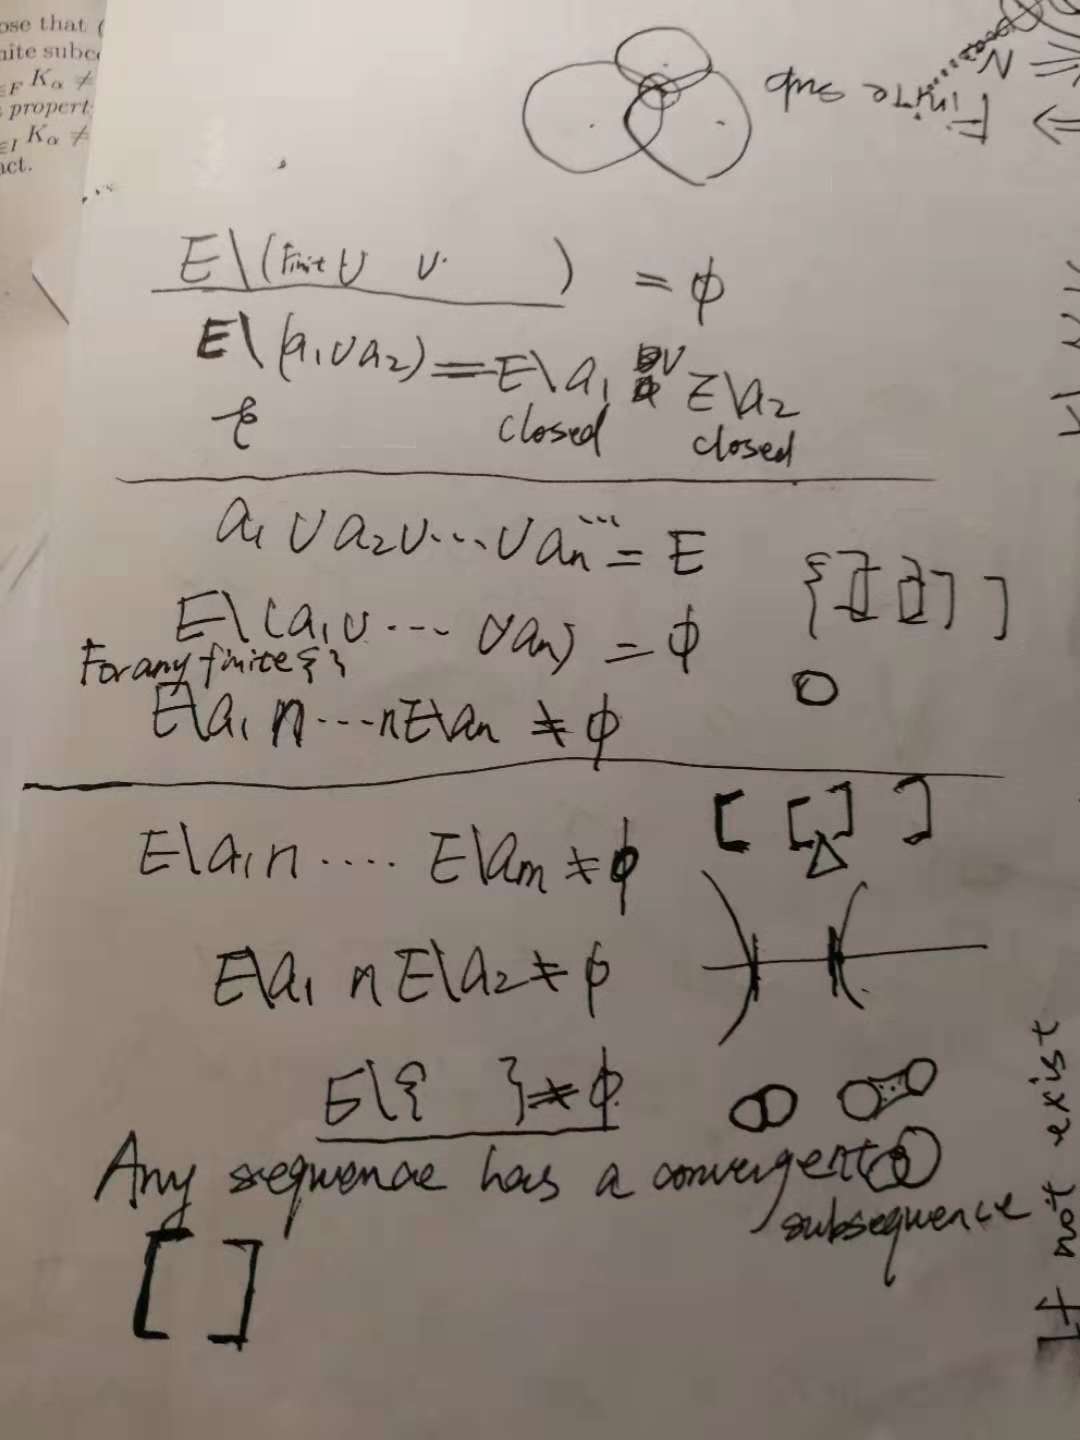 ose that (
nite subco
∈F Kα ≠
propert
∈I Kα ≠
act.
Finite sub
N
E\(Finit U U ) = ϕ
E\(a1∪a2) = E\a1 ∪ E\a2
closed closed
a1 ∪ a2 ∪ ... ∪ an ... = E
E\(a1 ∪ ... ∪ an) = ϕ
For any finite { }
E\a1 ∩ ... ∩ E\an ≠ ϕ
E\a1 ∩ .... E\am ≠ ϕ
E\a1 ∩ E\a2 ≠ ϕ
E\{ } ≠ ϕ
Any sequence has a convergent
subsequence
[ ]
If not exist